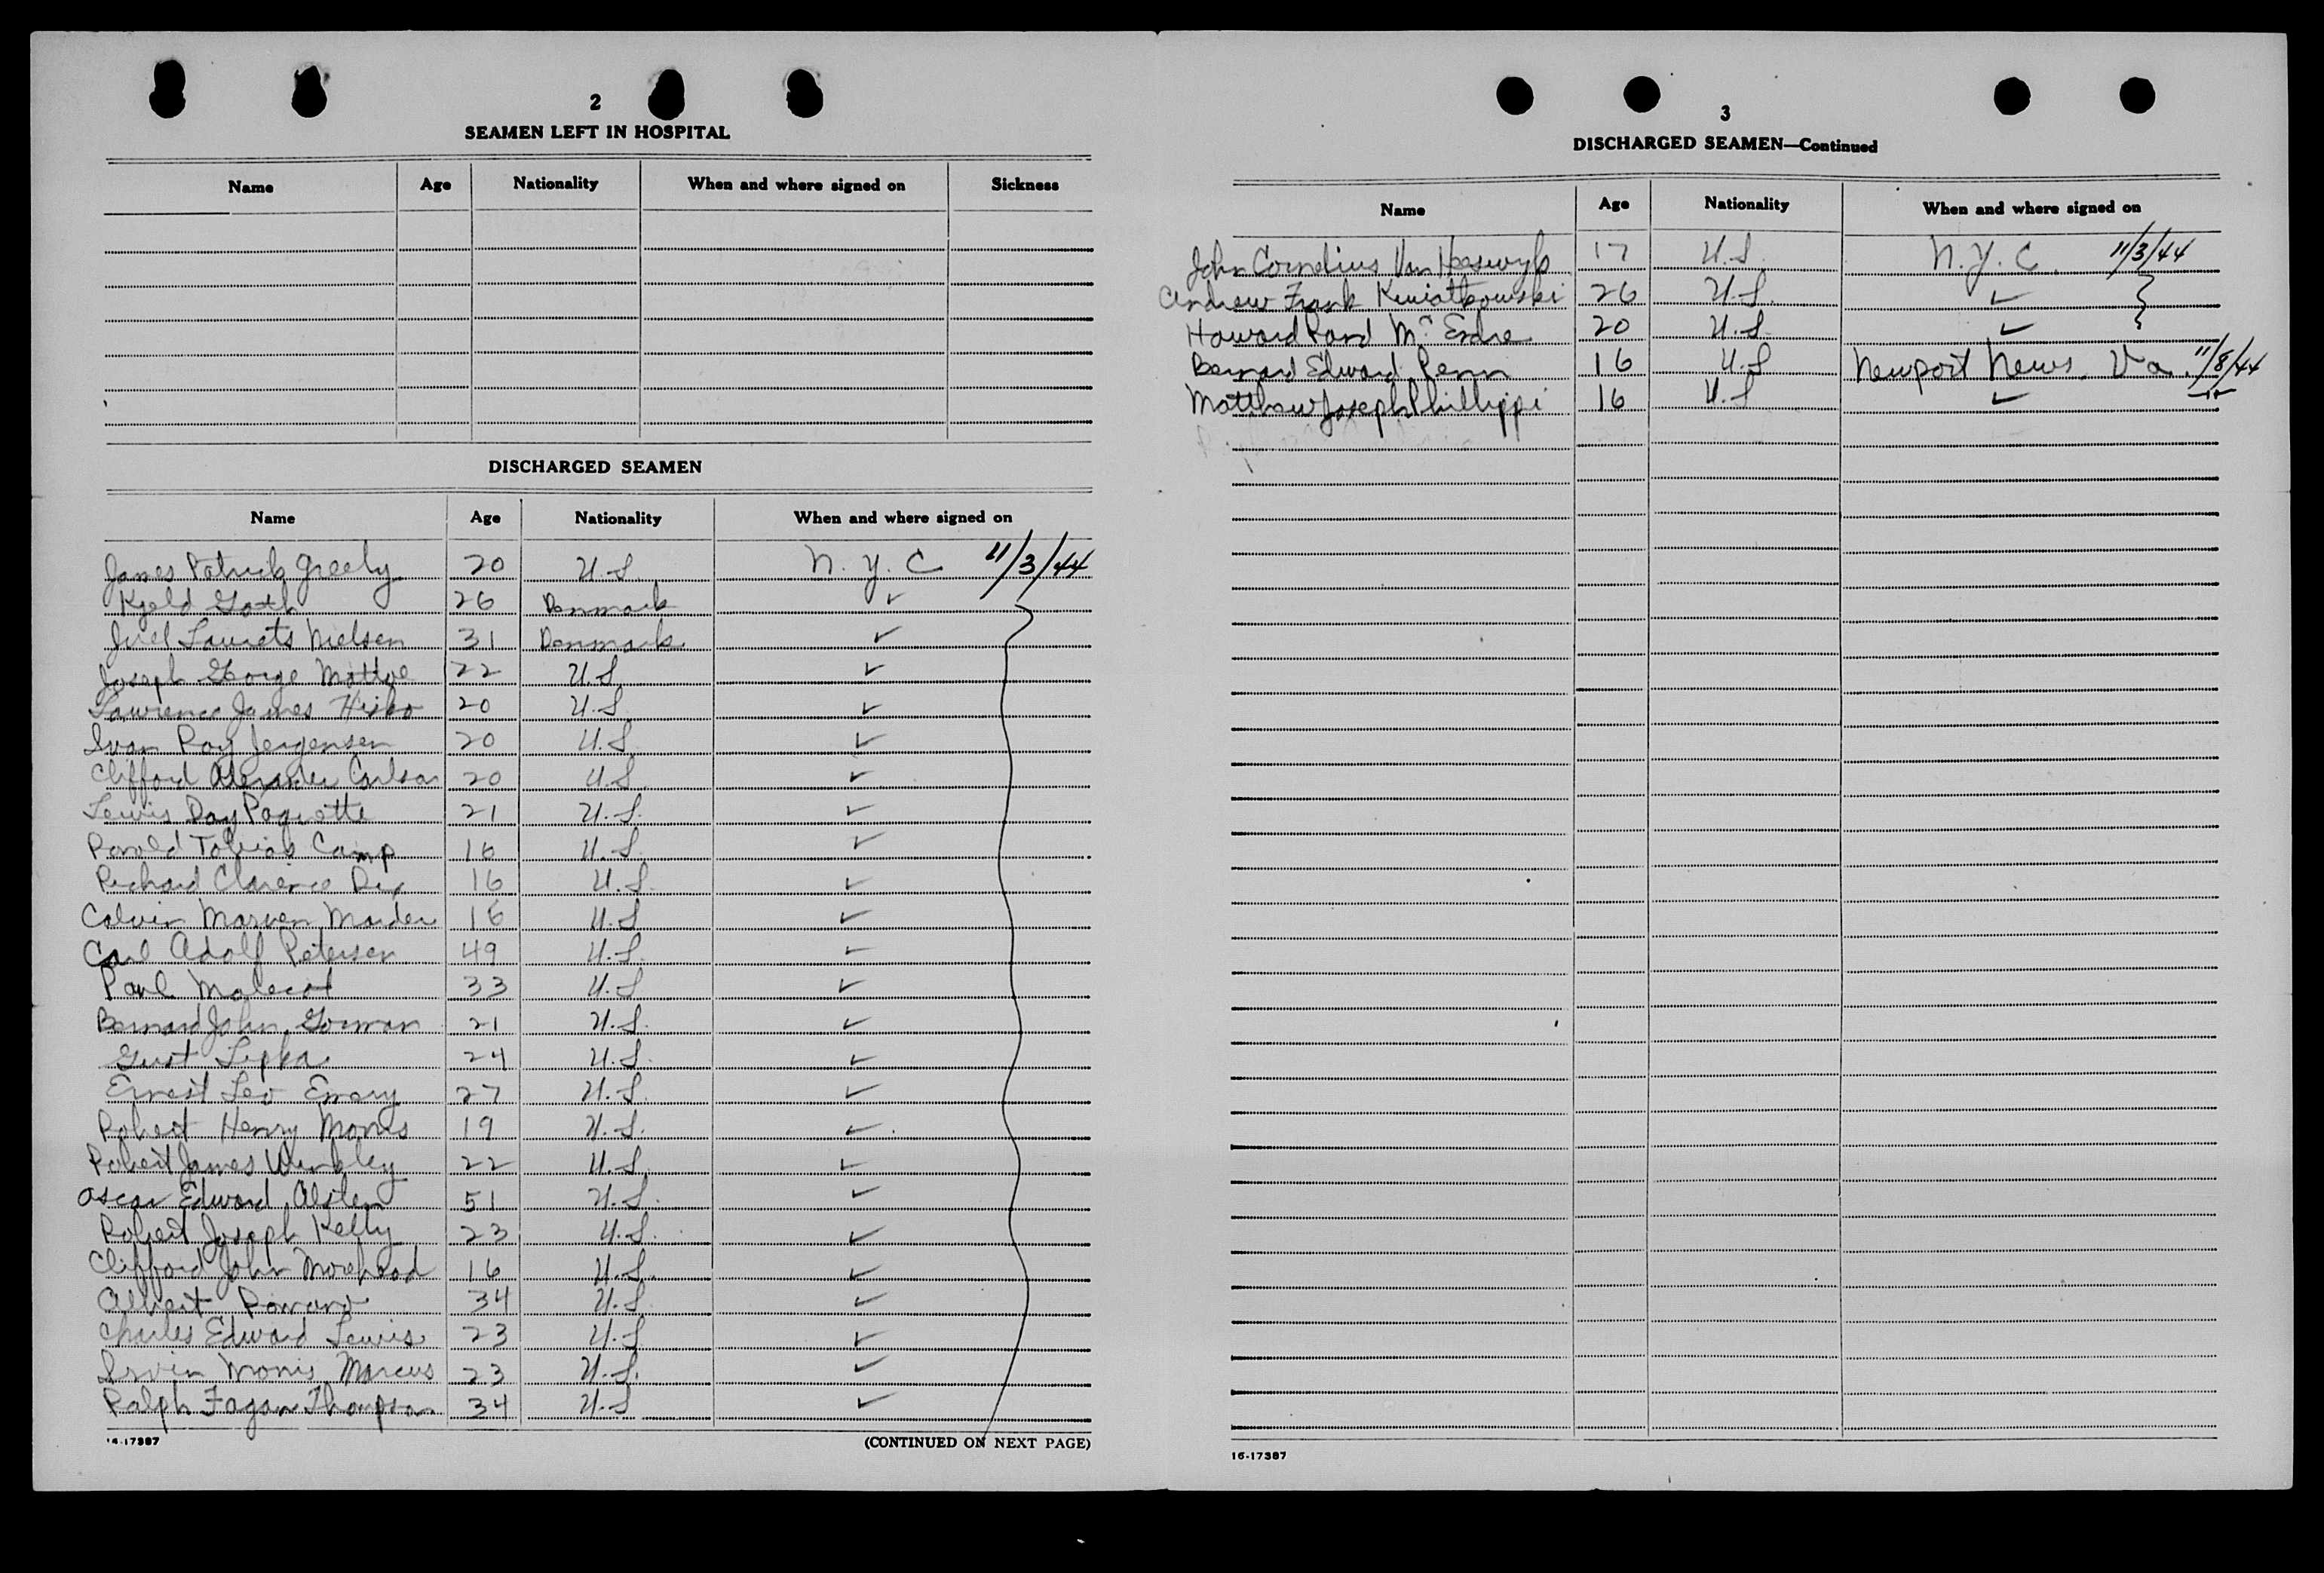 2
SEAMEN LEFT IN HOSPITAL
Name Age Nationality When and where signed on Sickness
DISCHARGED SEAMEN
Name Age Nationality When and where signed on
James Patrick Greely 20 U.S. N.Y.C 11/3/44
Kjeld 26 Denmark ✓
Juel Laurets Nielsen 31 Denmark ✓
Joseph George 22 U.S. ✓
Lawrence James 20 U.S. ✓
Ivan Ray Jergensen 20 U.S. ✓
Clifford Alexander Carlson 20 U.S. ✓
Lewis Day Paquette 21 U.S. ✓
Tobias Camp 16 U.S. ✓
Richard Clarence Dix 16 U.S. ✓
Calvin Marven 16 U.S. ✓
Carl Adolf Petersen 49 U.S. ✓
Paul 33 U.S. ✓
Bernard John Gorman 21 U.S. ✓
Gust Lipka 24 U.S. ✓
Ernest Leo Emery 27 U.S. ✓
Robert Henry Morris 19 U.S. ✓
Robert James 22 U.S. ✓
Oscar Edward 51 U.S. ✓
Robert Joseph Kelly 23 U.S. ✓
Clifford John Morehead 16 U.S. ✓
Albert 34 U.S. ✓
Charles Edward Lewis 23 U.S. ✓
Irvin Morris Marcus 23 U.S. ✓
Ralph Fagan Thompson 34 U.S. ✓
16-17387 (CONTINUED ON NEXT PAGE)
3
DISCHARGED SEAMEN—Continued
Name Age Nationality When and where signed on
John Cornelius Van 17 U.S. N.Y.C. 11/3/44
Andrew Frank Kwiatkowski 26 U.S. ✓
Howard 20 U.S. ✓
Bernard Edward Penn 16 U.S Newport News, Va. 11/8/44
Matthew Joseph Phillippi 16 U.S ✓
16-17387